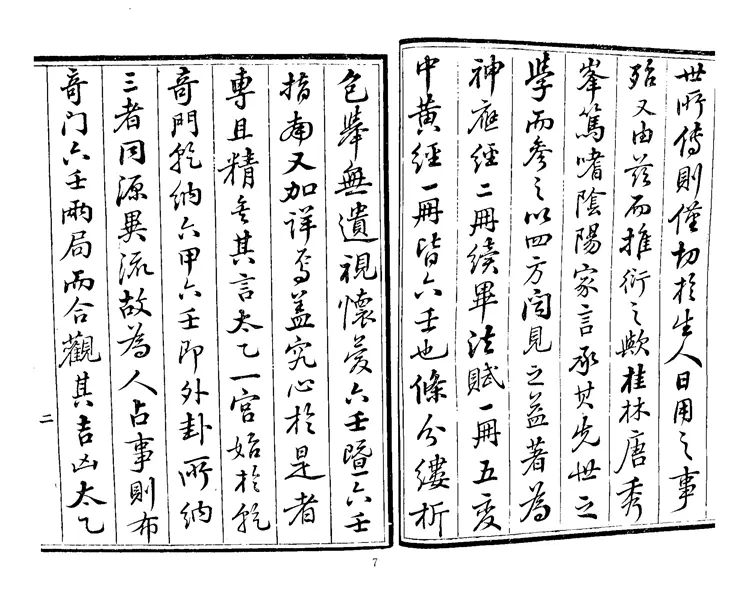 世所傳則僅切於生人日用之事
殆又由茲而推衍之歟桂林唐秀
峯篤嗜陰陽家言承其先世之
學而參之以四方聞見之益著為
神應經二冊續畢法賦一冊五變
中黃經一冊皆六壬也條分縷析
包舉無遺視懷葊六壬暨六壬
指南又加詳焉蓋究心於是者
專且精矣其言太乙一宮始於乾
奇門乾納六甲六壬即外卦所納
三者同源異流故為人占事則布
奇门六壬兩局而合觀其吉凶太乙
二
7